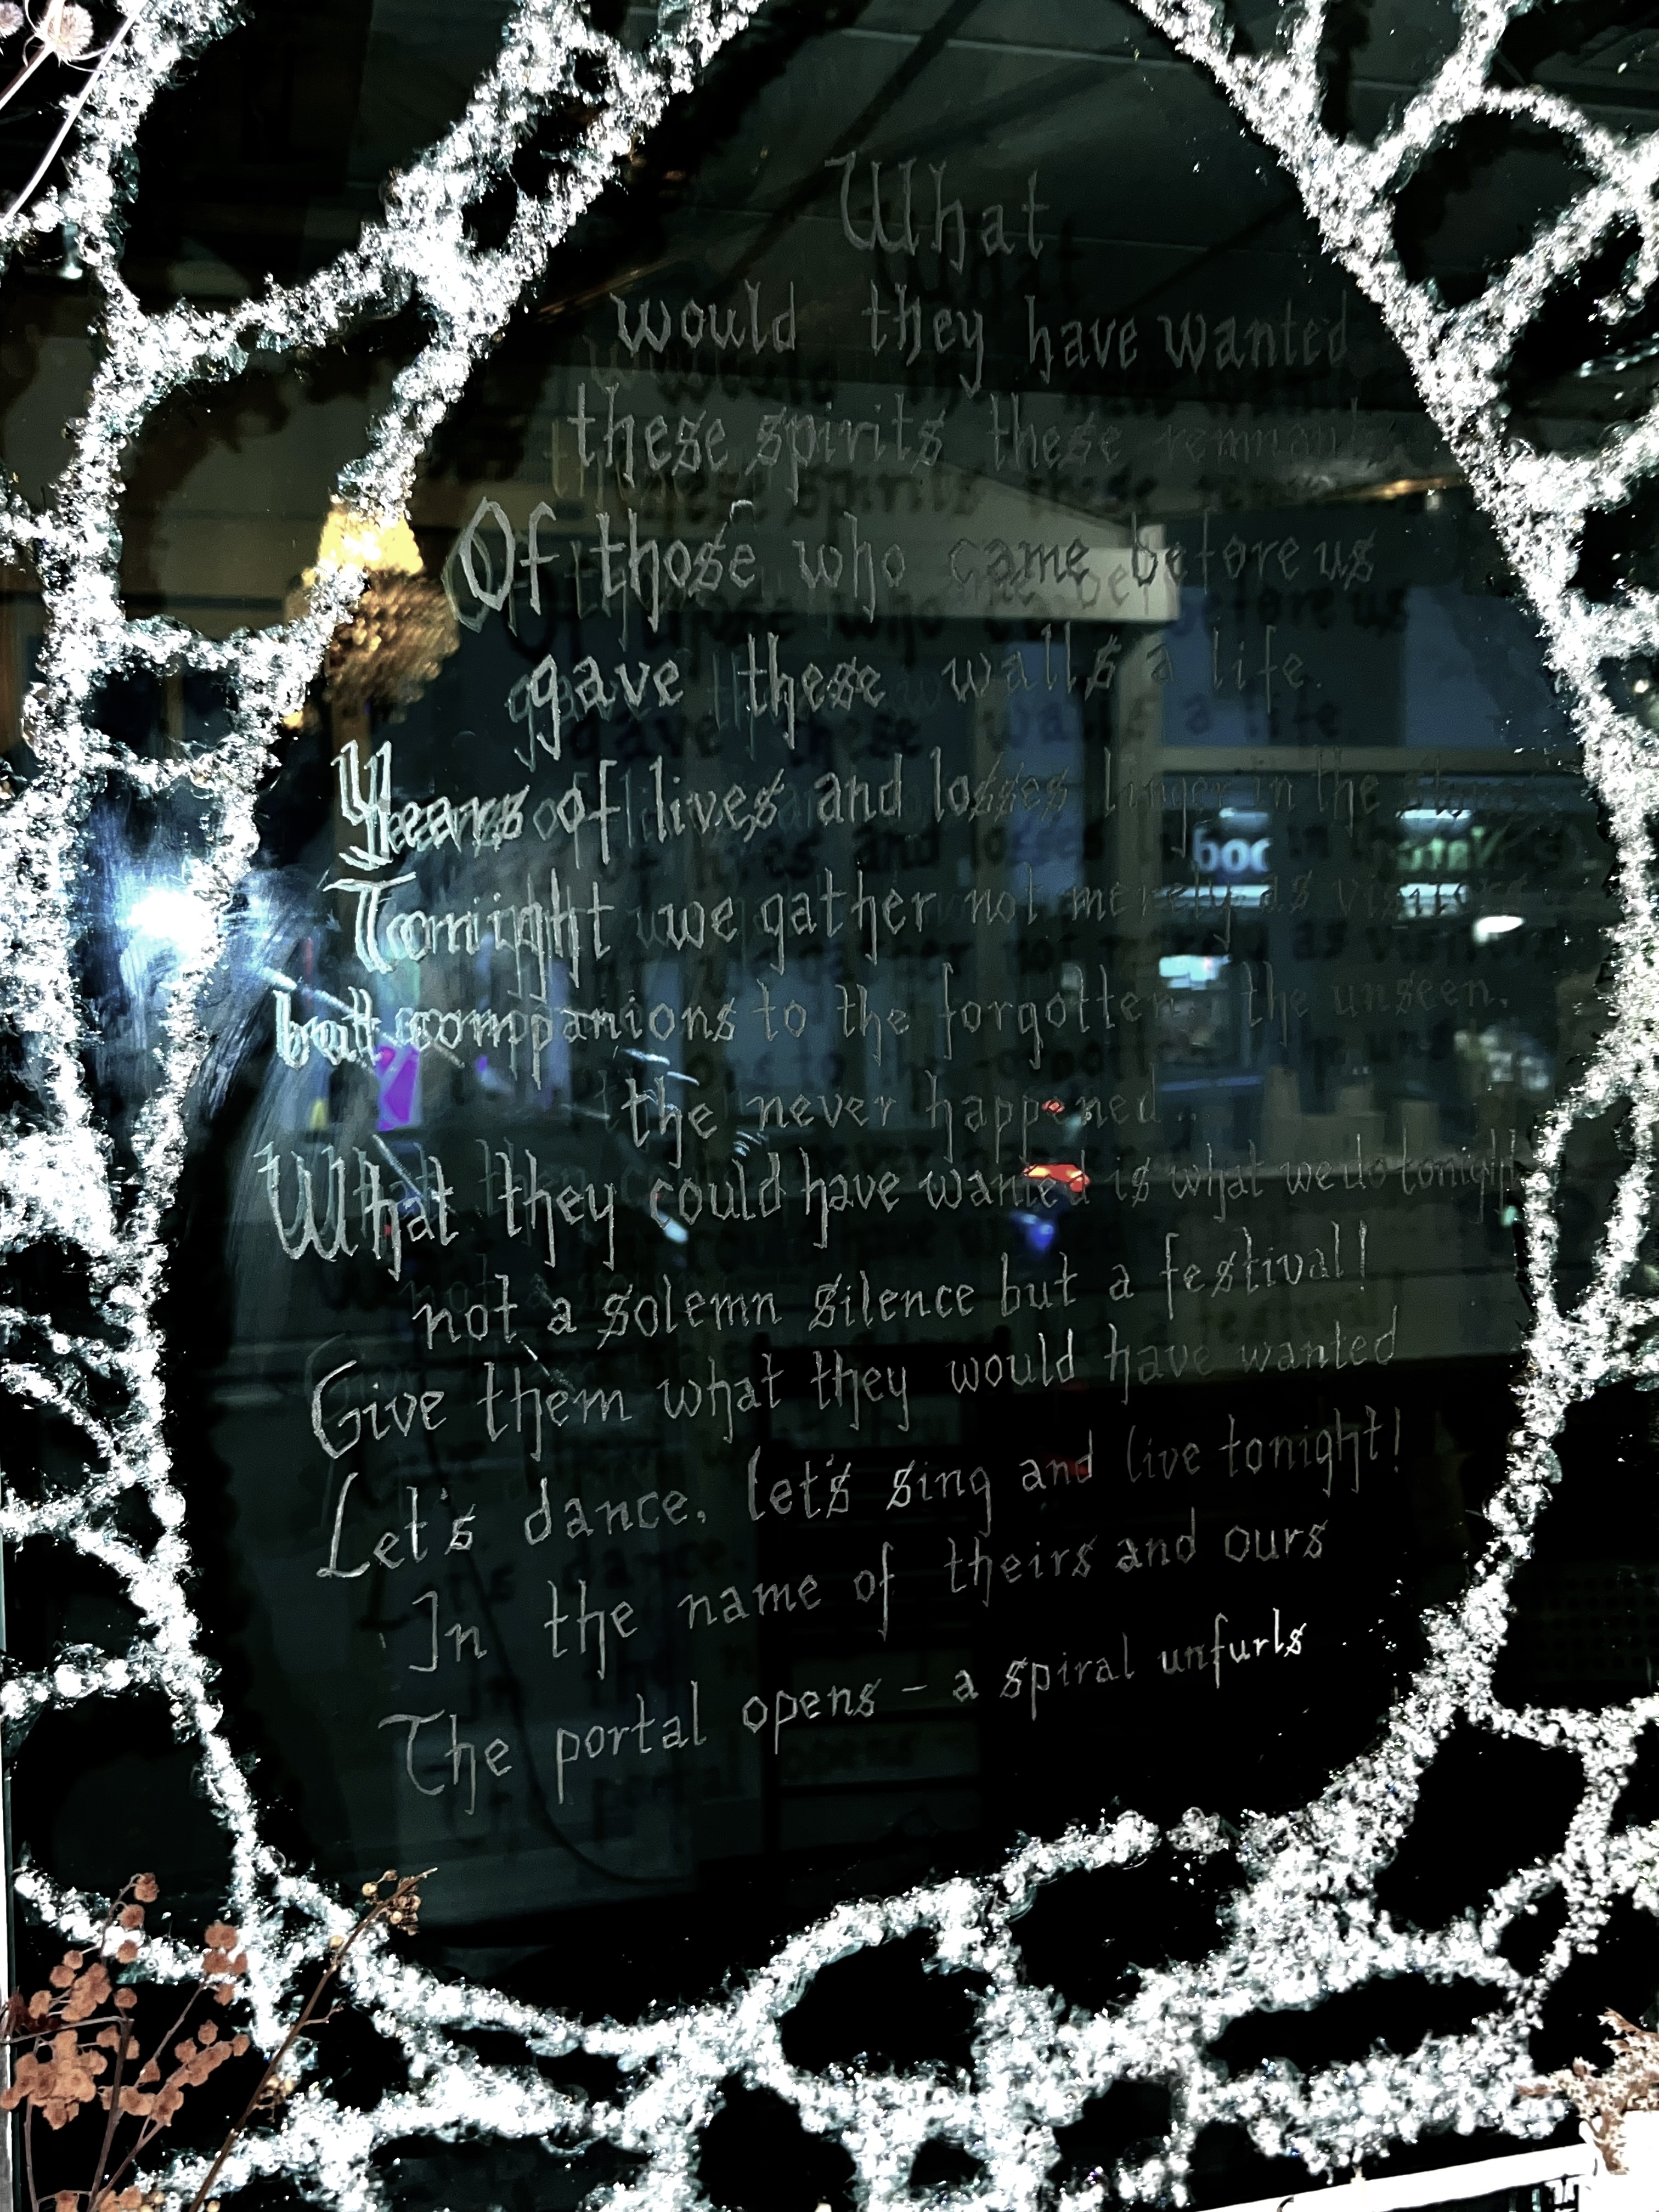 What
would they have wanted
these spirits these remnants
Of those who came before us
gave these walls a life.
Years of lives and losses linger in the
Tonight we gather not merely as visitors
but companions to the forgotten, the unseen,
the never happened..
What they could have wanted is what we do tonight
not a solemn silence but a festival!
Give them what they would have wanted
Let's dance, let's sing and live tonight!
In the name of theirs and ours
The portal opens – a spiral unfurls